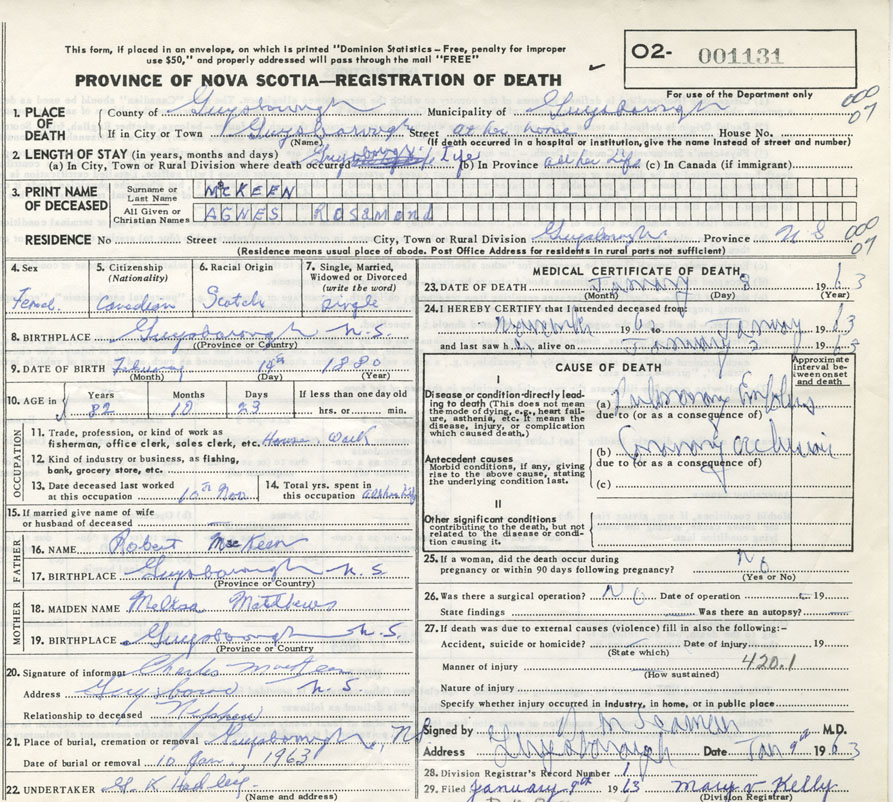 This form, if placed in an envelope, on which is printed "Dominion Statistics – Free, penalty for improper
use $50," and properly addressed will pass through the mail "FREE"
PROVINCE OF NOVA SCOTIA—REGISTRATION OF DEATH
O2- 001131
For use of the Department only
000
07
1. PLACE OF DEATH
County of Guysborough Municipality of Guysborough
If in City or Town Guysborough Street at her home House No.
(Name) (If death occurred in a hospital or institution, give the name instead of street and number)
2. LENGTH OF STAY (in years, months and days)
(a) In City, Town or Rural Division where death occurred Life (b) In Province all her Life (c) In Canada (if immigrant)
3. PRINT NAME OF DECEASED
Surname or Last Name McKEEN
All Given or Christian Names AGNES Rosamond
RESIDENCE No Street City, Town or Rural Division Guysborough Province N S
000
07
(Residence means usual place of abode. Post Office Address for residents in rural parts not sufficient)
4. Sex
Femal
5. Citizenship
(Nationality)
Canadian
6. Racial Origin
Scotch
7. Single, Married,
Widowed or Divorced
(write the word)
Single
8. BIRTHPLACE Guysborough N.S.
(Province or Country)
9. DATE OF BIRTH February 10th 1880
(Month) (Day) (Year)
10. AGE in
Years Months Days If less than one day old
82 10 23 hrs. or min.
OCCUPATION
11. Trade, profession, or kind of work as
fisherman, office clerk, sales clerk, etc. House Work
12. Kind of industry or business, as fishing,
bank, grocery store, etc.
13. Date deceased last worked
at this occupation 10th Nov
14. Total yrs. spent in
this occupation all her life
15. If married give name of wife
or husband of deceased —
FATHER
16. NAME Robert MacKeen
17. BIRTHPLACE Guysborough N.S
(Province or Country)
MOTHER
18. MAIDEN NAME Melissa Matthews
19. BIRTHPLACE Guysborough N.S.
(Province or Country)
20. Signature of informant Charles MacKeen
Address N.S.
Relationship to deceased Nephew
21. Place of burial, cremation or removal Guysborough, NS
Date of burial or removal 10 Jan, 1963
22. UNDERTAKER G. K Hadley
(Name and address)
MEDICAL CERTIFICATE OF DEATH
23. DATE OF DEATH January 3 1963
(Month) (Day) (Year)
24. I HEREBY CERTIFY that I attended deceased from:
November 1962 to January 1963
and last saw her alive on January 1963
CAUSE OF DEATH
Approximate
interval be-
tween onset
and death
I
Disease or condition directly lead-
ing to death (This does not mean
the mode of dying, e.g., heart fail-
ure, asthenia, etc. It means the
disease, injury, or complication
which caused death.)
(a) Pulmonary Embolus
due to (or as a consequence of)
Antecedent causes
Morbid conditions, if any, giving
rise to the above cause, stating
the underlying condition last.
(b) Coronary occlusion
due to (or as a consequence of)
(c)
II
Other significant conditions
contributing to the death, but not
related to the disease or condi-
tion causing it.
25. If a woman, did the death occur during
pregnancy or within 90 days following pregnancy? No
(Yes or No)
26. Was there a surgical operation? No Date of operation 19
State findings Was there an autopsy?
27. If death was due to external causes (violence) fill in also the following:-
Accident, suicide or homicide? Date of injury 19
(State which)
Manner of injury 420.1
(How sustained)
Nature of injury
Specify whether injury occurred in industry, in home, or in public place
Signed by M.D.
Address Guysborough Date Jan 9th 1963
28. Division Registrar's Record Number 1
29. Filed January 9th 1963 Mary V Kelly
(Division Registrar)